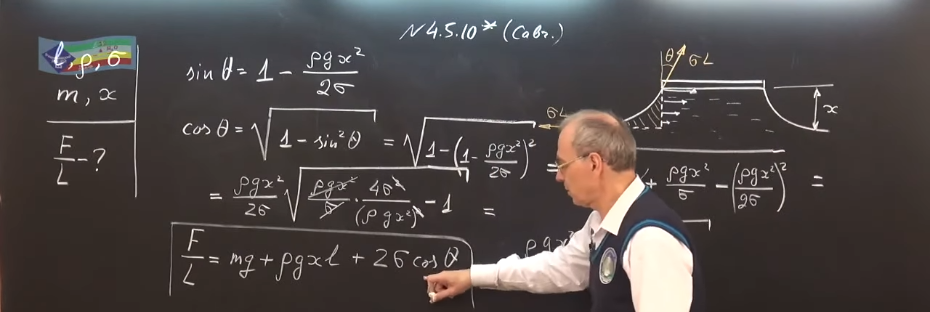 N 4.5.10* (Савч.)
l, ρ, σ
m, x
F/L - ?
sin θ = 1 - ρgx²/2σ
cos θ = √(1 - sin²θ) = √(1 - (1 - ρgx²/2σ)²) =
+ ρgx²/σ - (ρgx²/2σ)² =
= ρgx²/2σ √(ρgx²/σ · 4σ²/(ρgx²)² - 1) =
ρgx²
F/L = mg + ρgxl + 2σ cos θ
θ
σL
σL
x